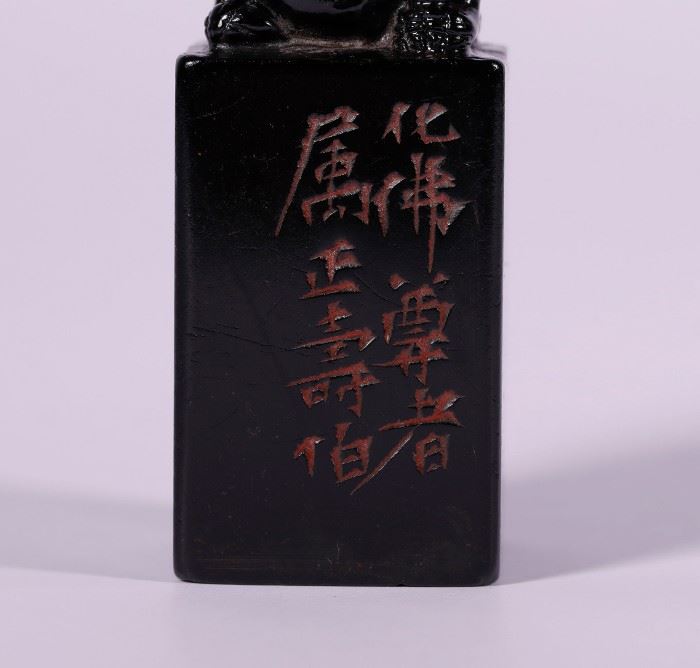 化佛尊者
属正壽伯